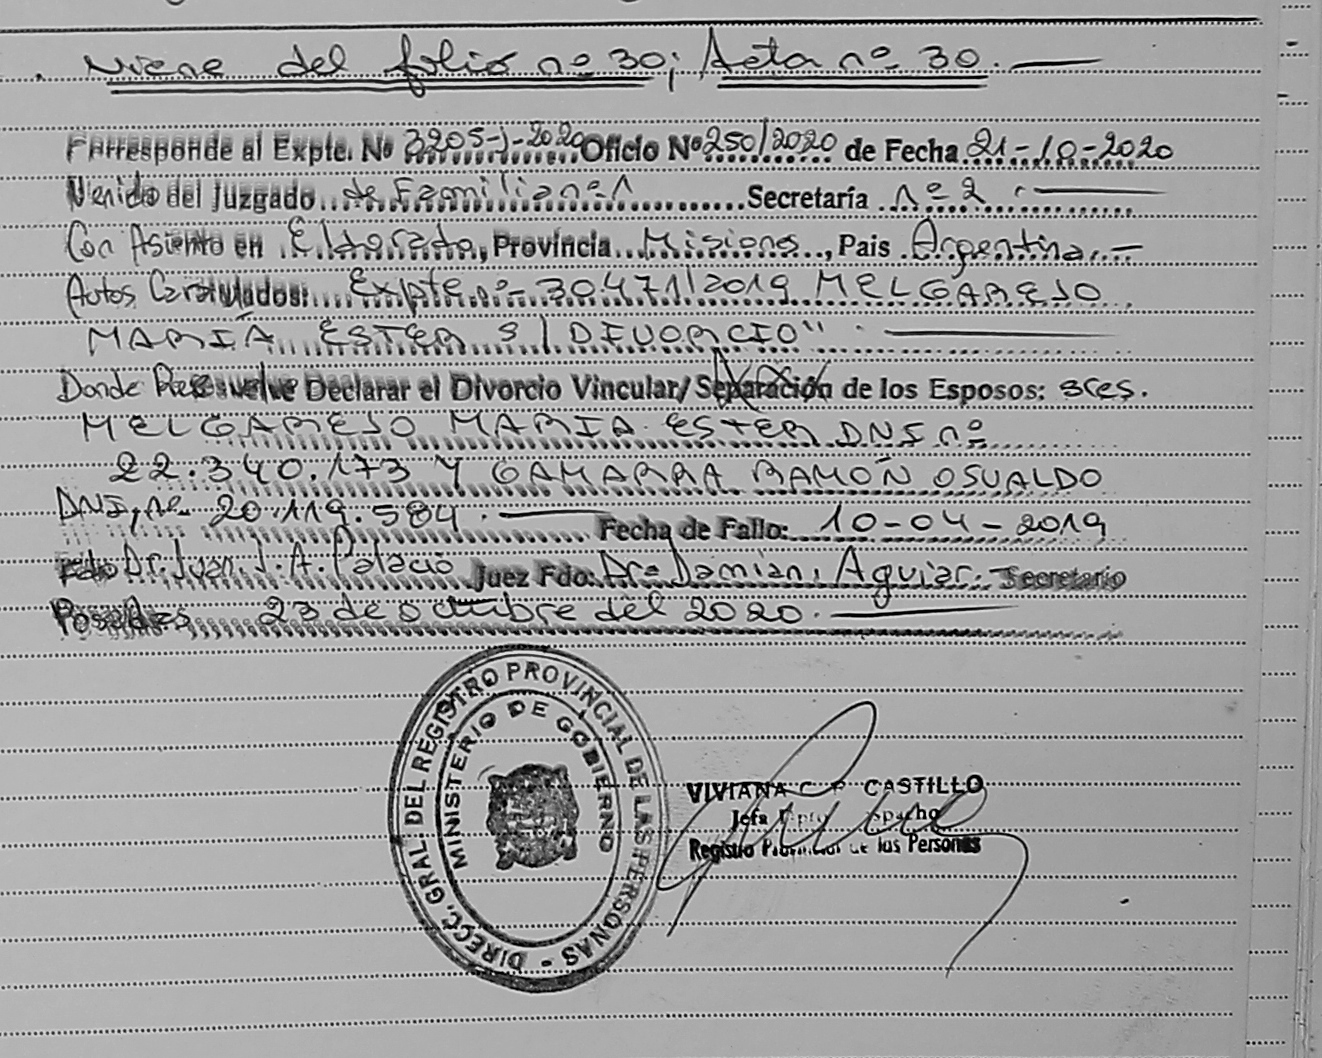 Viene del folio nº 30; Acta nº 30.
Corresponde al Expte. Nº 3205-J-2020 Oficio Nº 250/2020 de Fecha 21-10-2020
Venido del Juzgado de Familia nº 1 Secretaría nº 2.
Con Asiento en Eldorado, Provincia Misiones, Pais Argentina.
Autos Caratulados: Expte nº 30471/2019 MELGAREJO
MARÍA ESTER S/DIVORCIO"
Donde Resuelve Declarar el Divorcio Vincular/ Separación de los Esposos: sres.
MELGAREJO MARIA ESTER DNI nº
22.340.173 Y GAMARRA RAMÓN OSVALDO
DNI, nº 20.119.584. Fecha de Fallo: 10-04-2019
Fdo Dr. Juan. J. A. Palacio Juez Fdo: Dra Damiani Aguiar. Secretario
Posadas 23 de octubre del 2020.
DIRECC. GRAL. DEL REGISTRO PROVINCIAL DE LAS PERSONAS -
MINISTERIO DE GOBIERNO
VIVIANA CASTILLO
Jefa Dpto. Despacho
Registro Provincial de las Personas